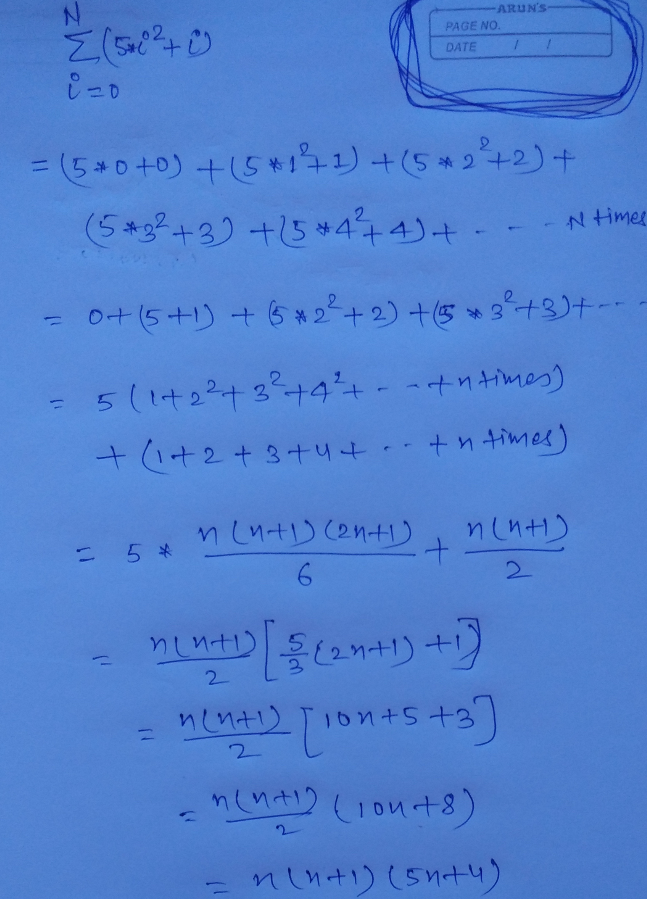 ARUN'S
PAGE NO.
DATE / /
N
Σ(5*i²+i)
i=0
= (5*0+0) + (5*1²+1) + (5*2²+2) +
(5*3²+3) + (5*4²+4) + - - - N times
= 0+(5+1) + (5*2²+2) + (5*3²+3)+ - - -
= 5(1+2²+3²+4²+ - - +n times)
+ (1+2+3+4+ - - +n times)
= 5 * n(n+1)(2n+1)/6 + n(n+1)/2
= n(n+1)/2 [5/3(2n+1)+1]
= n(n+1)/2 [10n+5+3]
= n(n+1)/2 (10n+8)
= n(n+1)(5n+4)